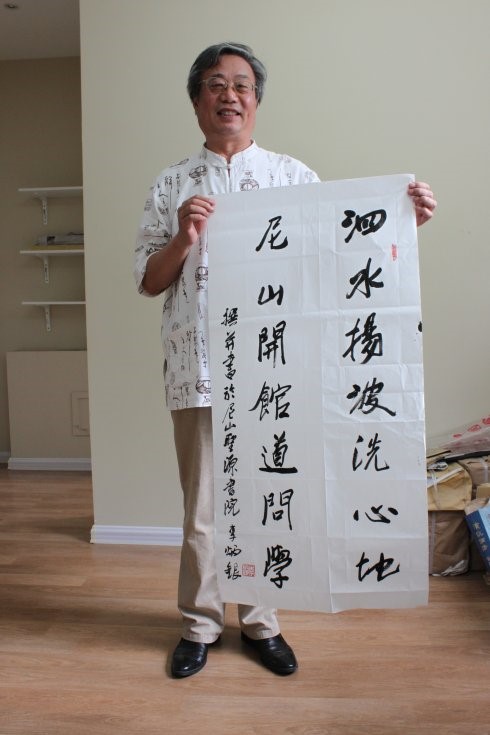 泗水揚波洗心地
尼山開館道問學
撰并書於尼山聖源書院 李炳銀